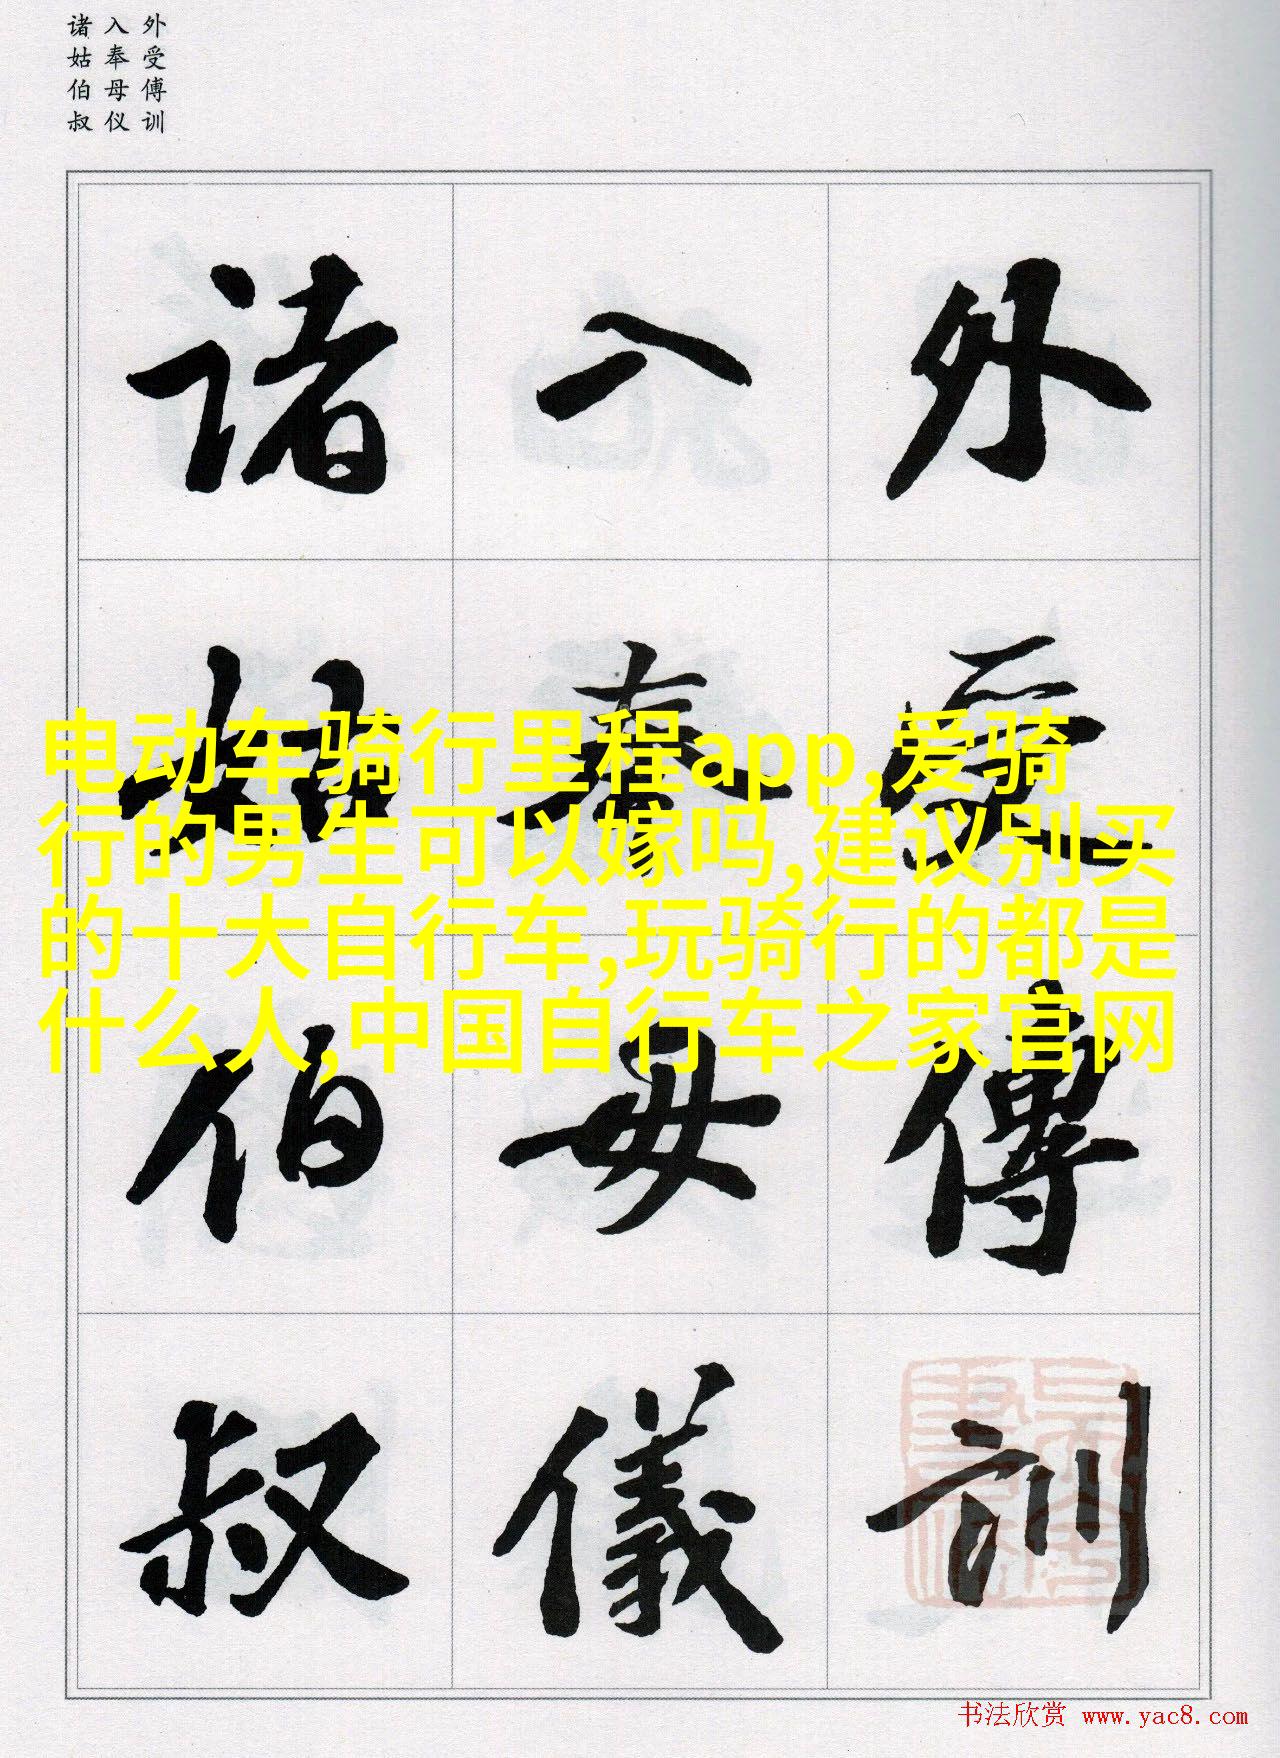 诸 入 外
姑 奉 受
伯 母 傅
叔 仪 训
诸 入 外
姑 奉 受
伯 母 傅
叔 儀 訓
电动车骑行里程app,爱骑
行的男生可以嫁吗,建议别买
的十大自行车,玩骑行的都是
什么人,中国自行车之家官网
书法欣赏 www.yac8.com